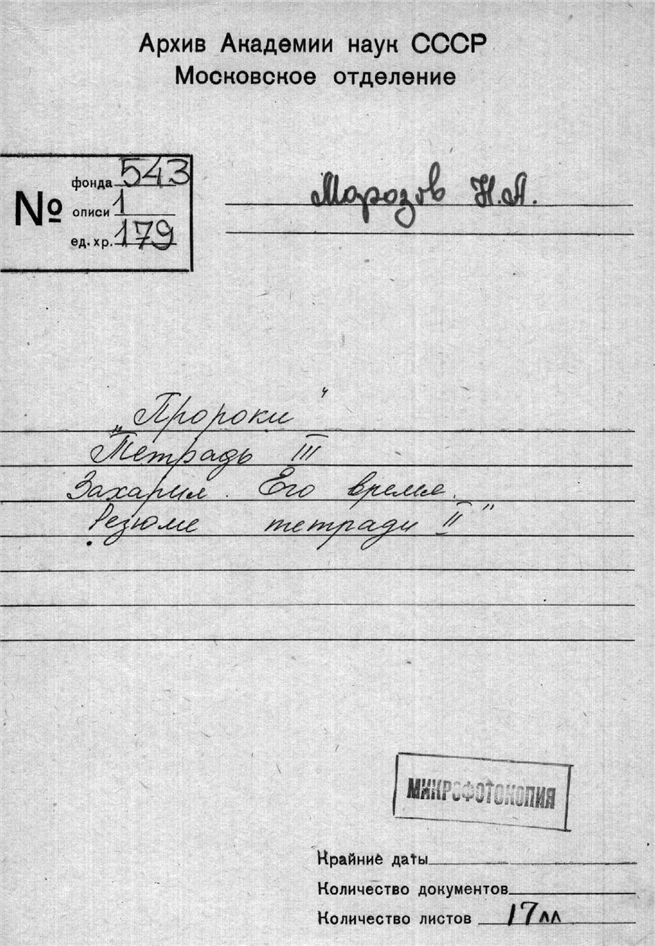 Архив Академии наук СССР
Московское отделение
№
фонда 543
описи 1
ед. хр. 179
Морозов Н.А.
„Пророки"
Тетрадь III
Захария. Его время.
Резюме тетради II"
МИКРОФОТОКОПИЯ
Крайние даты
Количество документов
Количество листов 17 лл